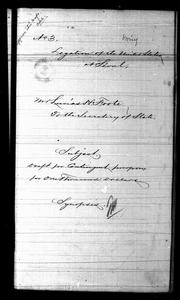 No 3.
Legation of the United States
at Seoul.
Mr Lucius H. Foote
To the Secretary of State.
Subject
draft for Contingent purposes
for One Thousand dollars
Synopsis.